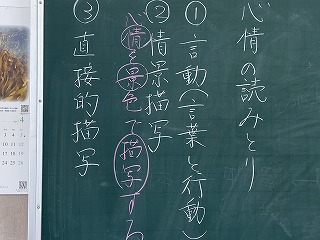 心情の読みとり
① 言動(言葉と行動)
② 情景描写
心情を景色で描写する
③ 直接的描写